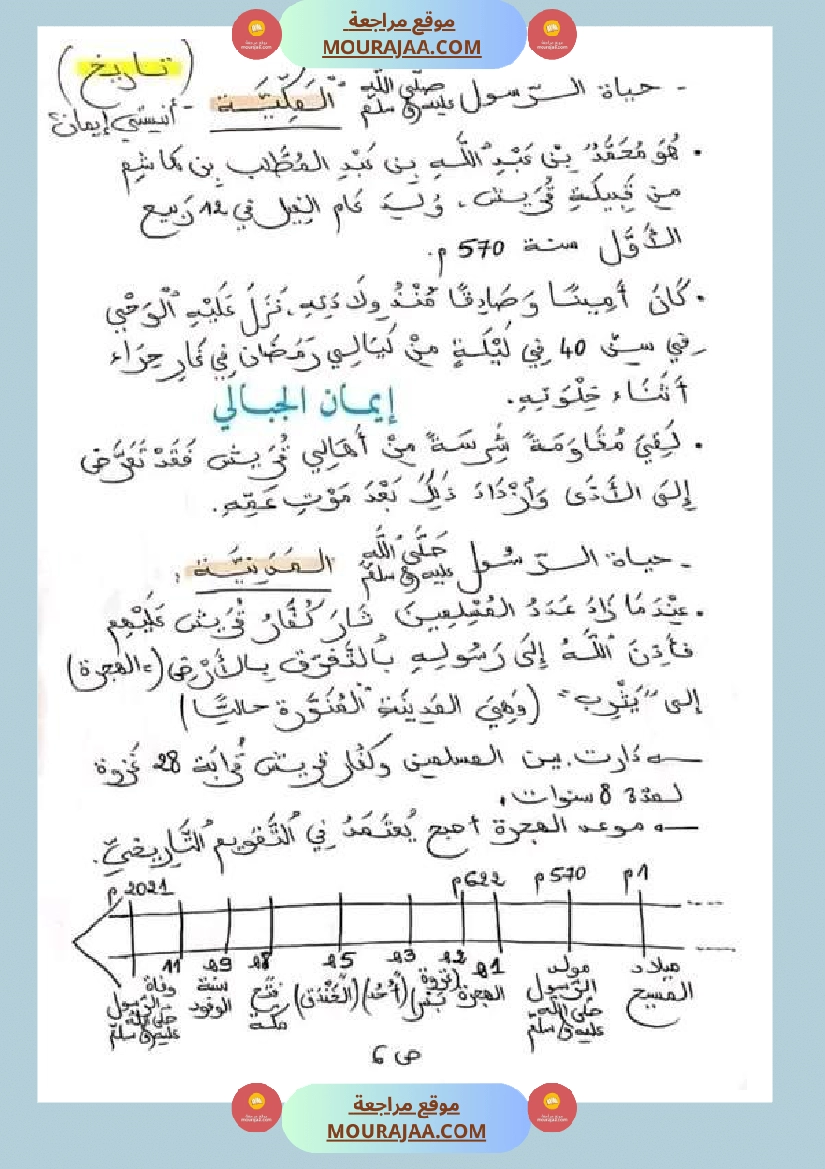 موقع مراجعة
MOURAJAA.COM
(تاريخ)
- حياة الرّسول صلّى اللّه عليه و سلّم المَكِّيَّة
- أنيستي إيمان
• هُوَ مُحَمَّدُ بِنْ عَبْدِ اللَّهِ بِنْ عَبْدِ المُطَّلِب بِن هَاشِم
مِن قَبِيلَةِ قُرَيش. وُلِدَ عَام الفِيل في 12 رَبِيع
الأَوَّل سنة 570 م.
• كَانَ أَمِينًا وَ صَادِقًا مُنْذُ وِلَادَتِهِ. نَزَلَ عَلَيْهِ الْوَحْيُ
في سنّ 40 فِي لَيْلَةٍ مِنْ لَيَالِي رَمَضَان فِي غَارِ حِرَاء
أَثْنَاء خِلْوَتِهِ.
إيمان الجبالي
• لَقِيَ مُقَاوَمَةً شَرِسَةً مِنْ أَهَالِي قُرَيش فَقَدْ تَعَرَّضَ
إِلَى الأَذَى وَازْدَادَ ذَلِكَ بَعْدَ مَوْتِ عَمِّهِ.
- حياة الرّسُول صَلَّى اللَّه عليه و سلّم المَدَنِيَّة.
• عِنْدَمَا زَادَ عَدَدُ المُسْلِمِينَ ثَارَ كُفَّارُ قُرَيش عَلَيْهِم
فأَذِنَ اللَّهُ إِلَى رَسُولِهِ بِالتَّفَرُّق بِالأَرْضِ (= الهجرة)
إلى "يَثْرِب" (وَهِيَ المَدِينَة المُنَوَّرة حاليًّا)
← دَارت بين المسلمين وكفّار قريش قُرَابَة 28 غَزوة
لمدّة 8 سنوات.
← موعد الهجرة أصبح يُعْتَمَدُ فِي التَّقويم التَّاريخيّ.
م1
م570
م622
م2021
ميلاد المسيح
مولد الرّسول صلّى اللّه عليه و سلّم
ه1 الهجرة
ه2 (غزوة بدر)
ه3 (أُحُد)
ه5 (الْخَنْدَق)
ه8 فتح مكّة
ه9 سنة الوفود
11 وفاة الرّسول صلّى اللّه عليه و سلّم
ص 6
موقع مراجعة
MOURAJAA.COM